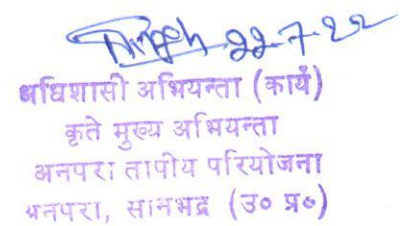 22-7-22
अधिशासी अभियन्ता (कार्य)
कृते मुख्य अभियन्ता
अनपरा तापीय परियोजना
अनपरा, सोनभद्र (उ० प्र०)